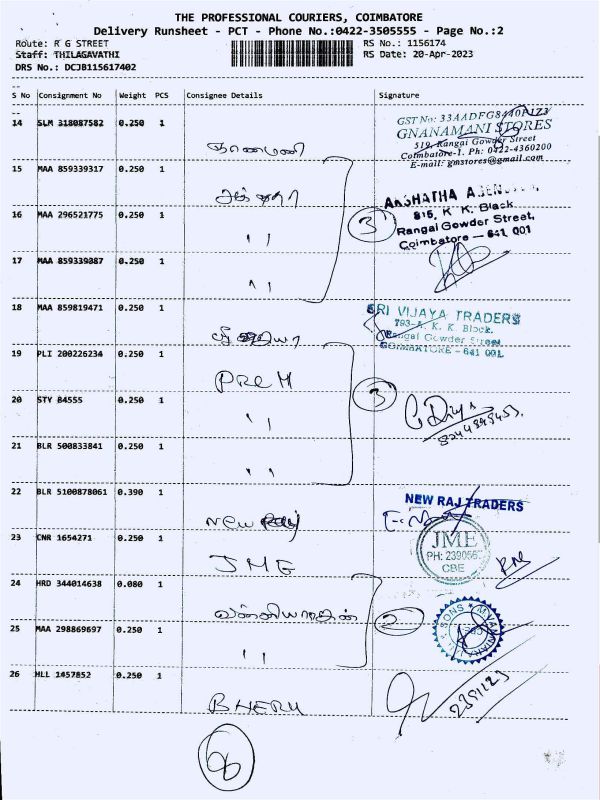 THE PROFESSIONAL COURIERS, COIMBATORE
Delivery Runsheet - PCT - Phone No.:0422-3505555 - Page No.:2
Route: R G STREET
RS No.: 1156174
Staff: THILAGAVATHI
RS Date: 20-Apr-2023
DRS No.: DCJB115617402
S No Consignment No Weight PCS Consignee Details Signature
14 SLM 318087582 0.250 1
ஞானமணி
GST No: 33AADFG8440P1Z3
GNANAMANI STORES
519, Rangai Gowder Street
Coimbatore-1. Ph: 0422-4360200
E-mail: gmstores@gmail.com
15 MAA 859339317 0.250 1
AKSHATHA
815, K. K. Block
Rangai Gowder Street,
Coimbatore - 641 001
3
16 MAA 296521775 0.250 1
" "
17 MAA 859339087 0.250 1
" "
18 MAA 859819471 0.250 1
SRI VIJAYA TRADERS
793-A, K. K. Block,
Rangai Gowder Street
COIMBATORE - 641 001.
19 PLI 200226234 0.250 1
PREM
3
20 STY 84555 0.250 1
" "
21 BLR 500833841 0.250 1
" "
22 BLR 5100878061 0.390 1
New Raj
NEW RAJ TRADERS
23 CNR 1654271 0.250 1
JME
JME
CBE
24 HRD 344014638 0.080 1
2
25 MAA 298869697 0.250 1
" "
26 HLL 1457852 0.250 1
BHERU